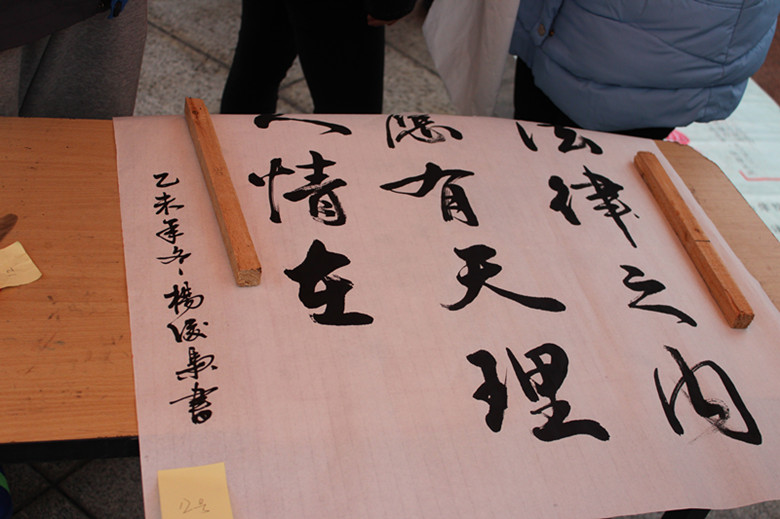 法律之内
應有天理
人情在
乙未年冬楊俊書
12号